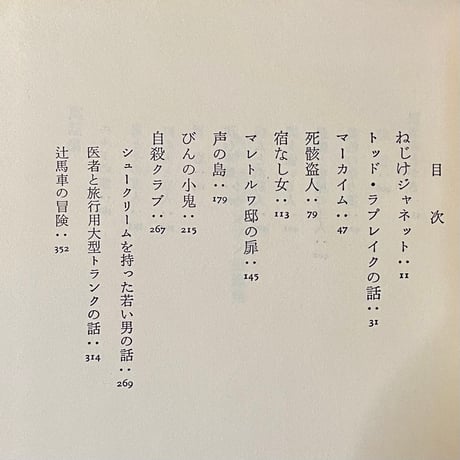 目次
ねじけジャネット‥11
トッド・ラプレイクの話‥31
マーカイム‥47
死骸盗人‥79
宿なし女‥113
マレトルワ邸の扉‥145
声の島‥179
びんの小鬼‥215
自殺クラブ‥267
シュークリームを持った若い男の話‥269
医者と旅行用大型トランクの話‥314
辻馬車の冒険‥352